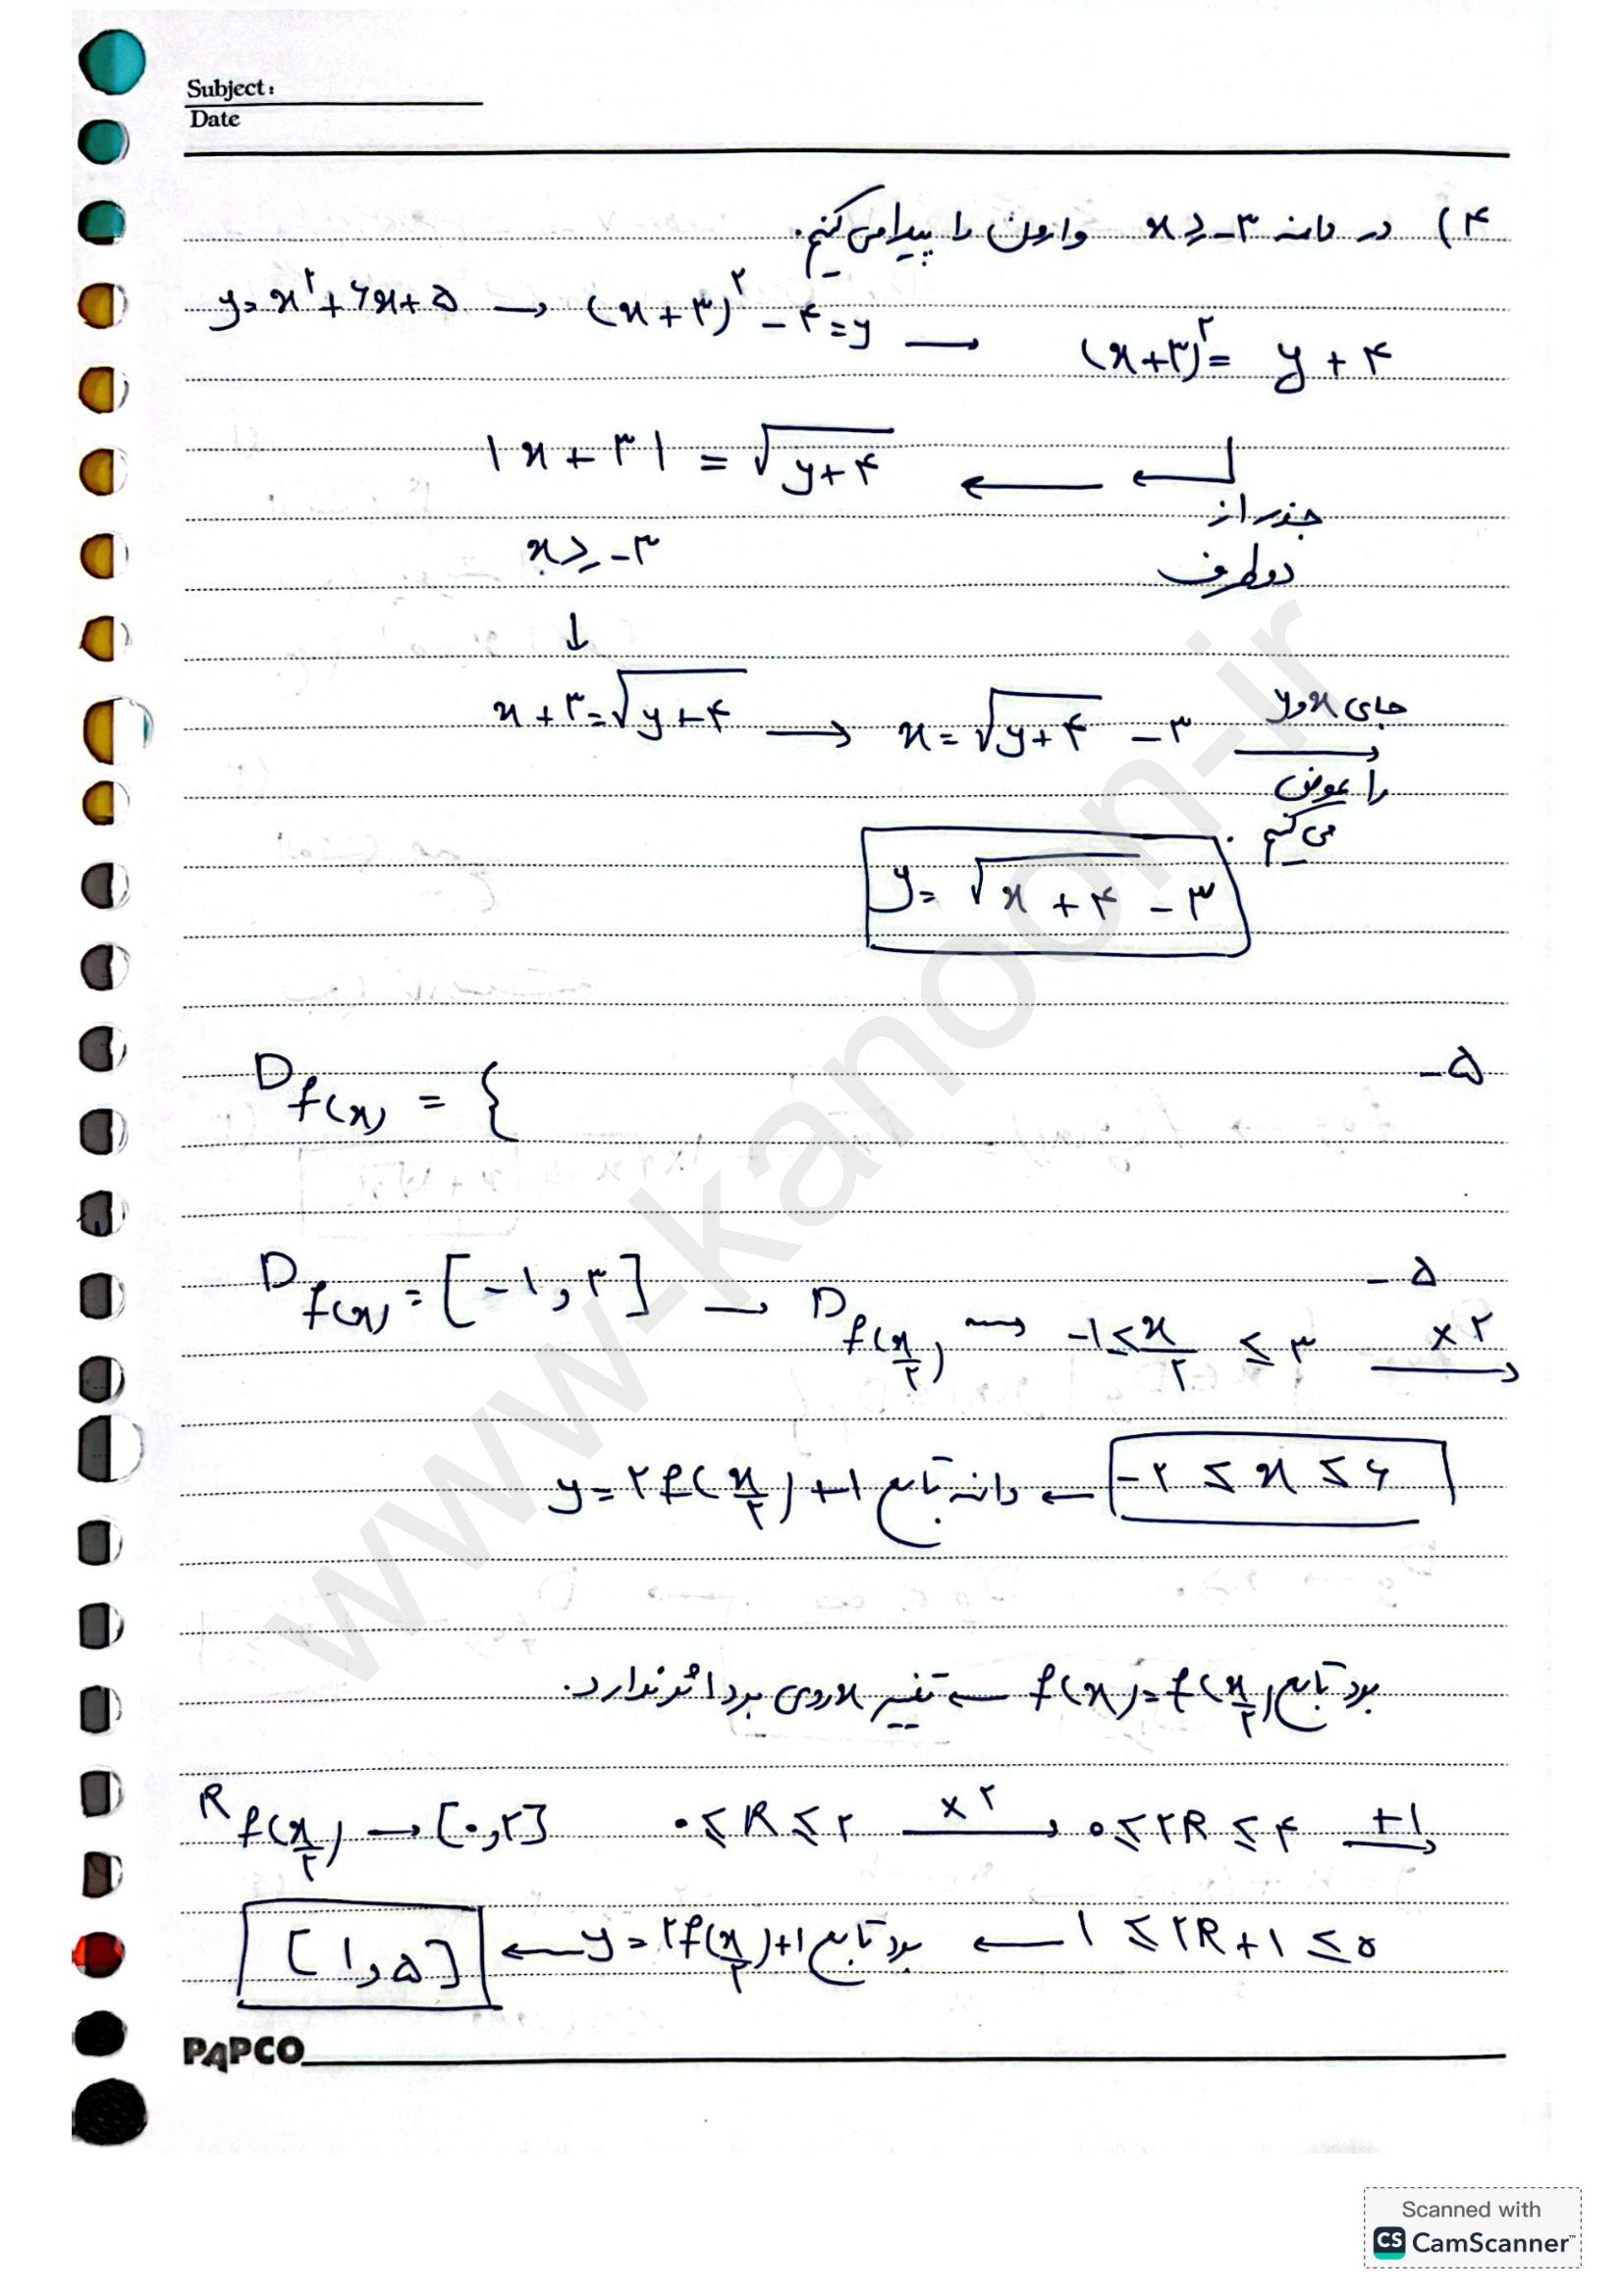 Subject:
Date
۴) در دامنه x ≥ -۳ وارون را پیدا می کنیم.
y = x² + ۶x + ۵ → (x + ۳)² - ۴ = y → (x+۳)² = y + ۴
جذر از دو طرف ← |x + ۳| = √(y+۴)
x ≥ -۳
↓
x + ۳ = √(y+۴) → x = √(y+۴) - ۳ جای x و y را عوض می کنیم.
y = √(x + ۴) - ۳
۵- D f(x) = {
۵- D f(x) = [-۱, ۳] → D f(x/۲) → -۱ ≤ x/۲ ≤ ۳ ×۲ →
-۲ ≤ x ≤ ۶ ← دامنه تابع y = ۲f(x/۲) + ۱
برد تابع f(x) = f(x/۲) ← تغییر x روی برد اثر ندارد.
R f(x/۲) → [۰, ۲] ۰ ≤ R ≤ ۲ ×۲ → ۰ ≤ ۲R ≤ ۴ +۱ →
۱ ≤ ۲R + ۱ ≤ ۵ ← برد تابع y = ۲f(x/۲)+۱ ← [۱, ۵]
PAPCO
www.kanoon.ir
Scanned with
CS CamScanner™